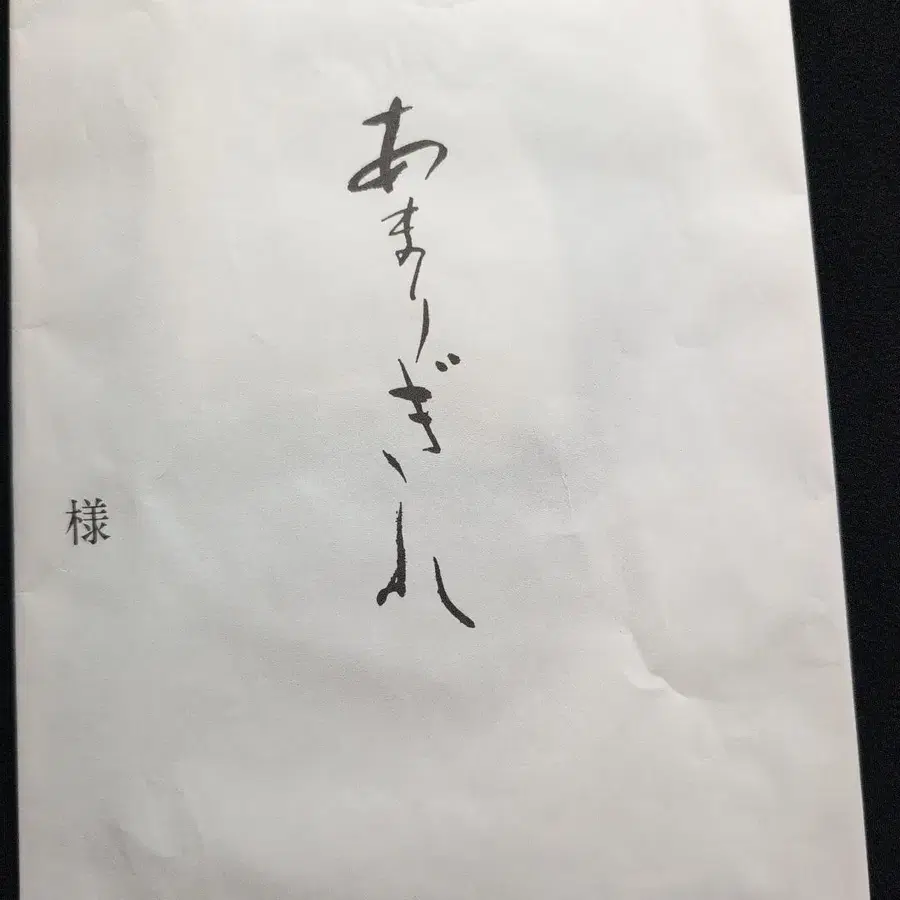 あまりぎれ
様